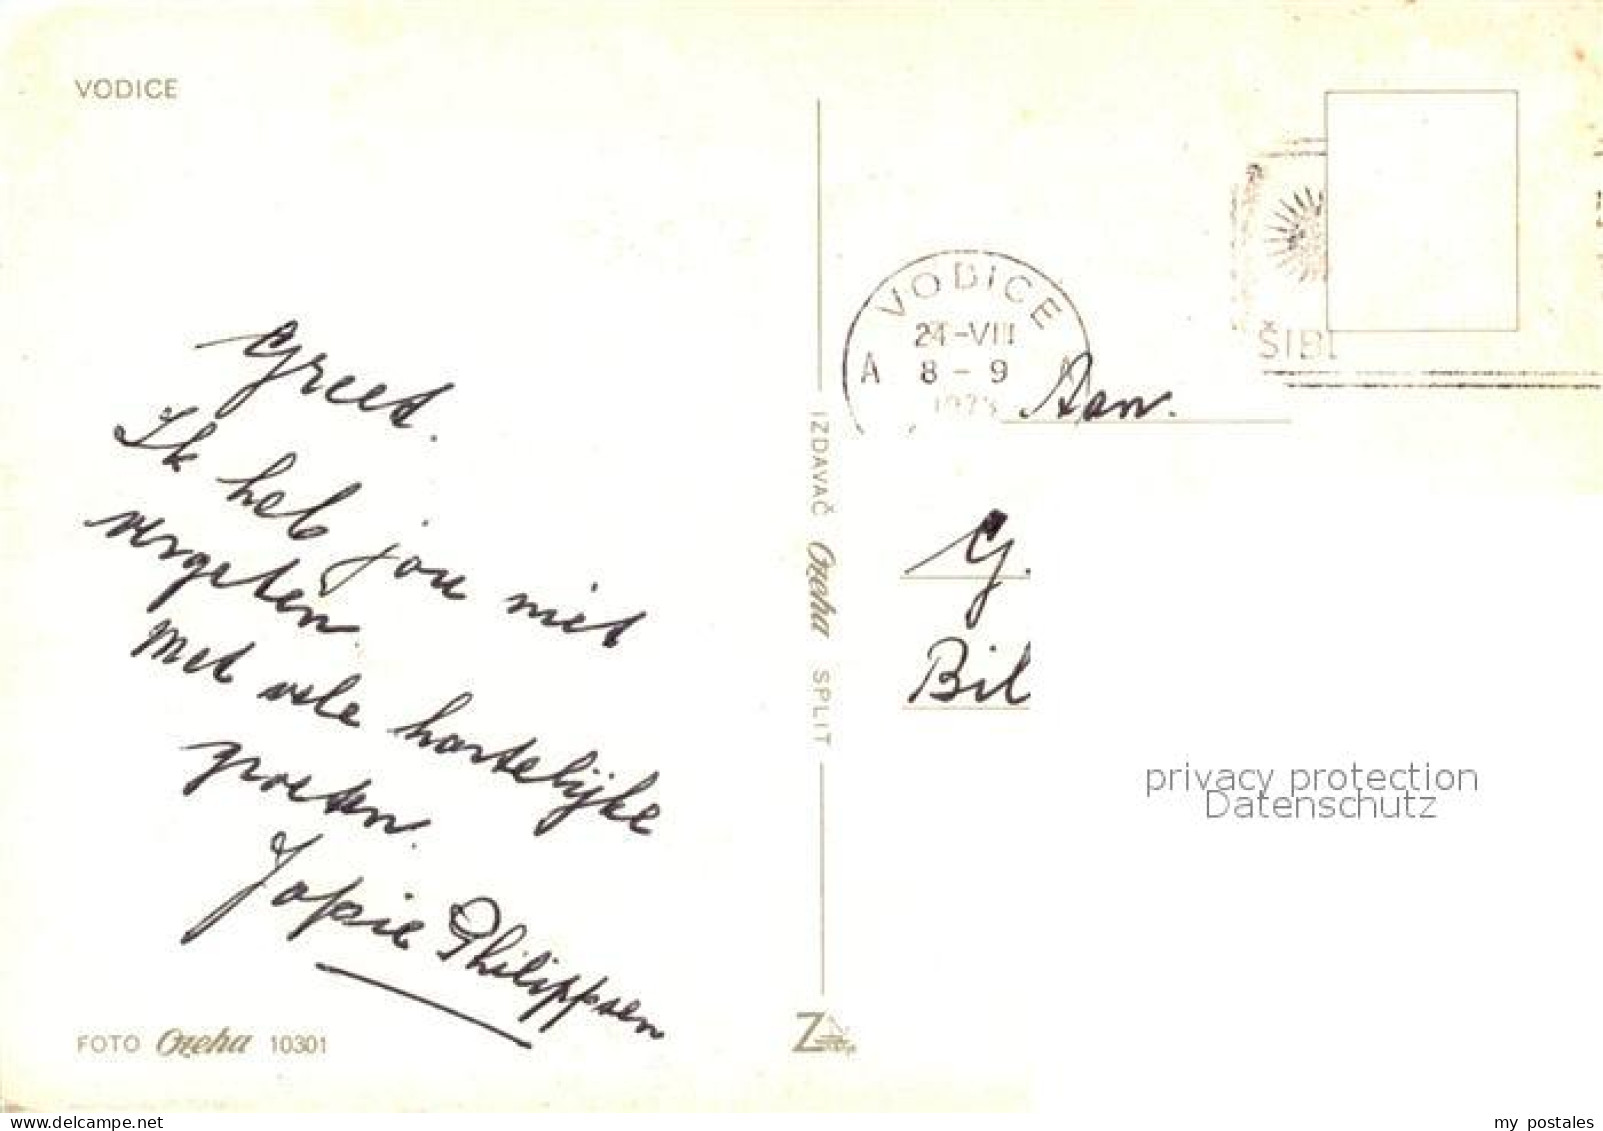 VODICE
Greet.
Ik heb jou niet
vergeten.
Met vele hartelijke
groeten.
Jopie Philippsen
FOTO Ozeha 10301
IZDAVAČ Ozeha SPLIT
VODICE
24-VIII
A 8-9 A
1973
ŠIBE
Aan.
G.
Bil
privacy protection
Datenschutz
delcampe.net
my_postales